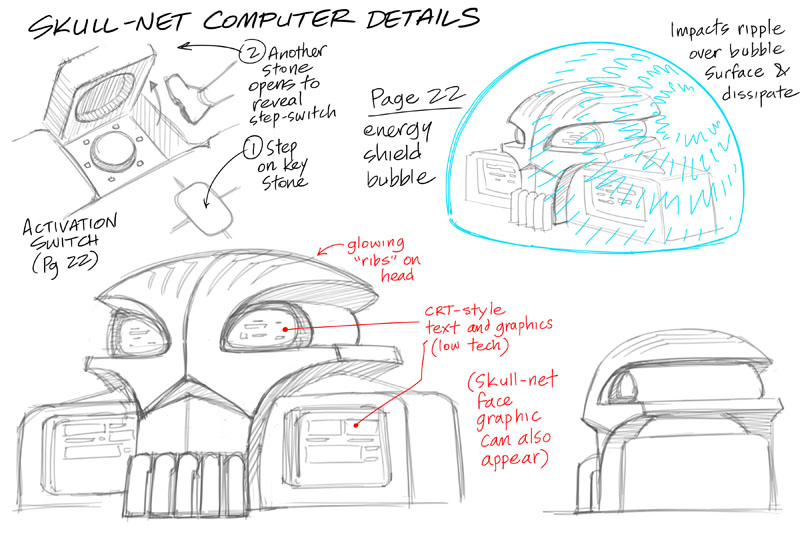 SKULL-NET COMPUTER DETAILS
② Another
stone
opens to
reveal
step-switch
① Step
on key
stone
ACTIVATION
SWITCH
(Pg 22)
Page 22
energy
shield
bubble
Impacts ripple
over bubble
surface &
dissipate
glowing
"ribs" on
head
CRT-style
text and graphics
(low tech)
(Skull-net
face
graphic
can also
appear)